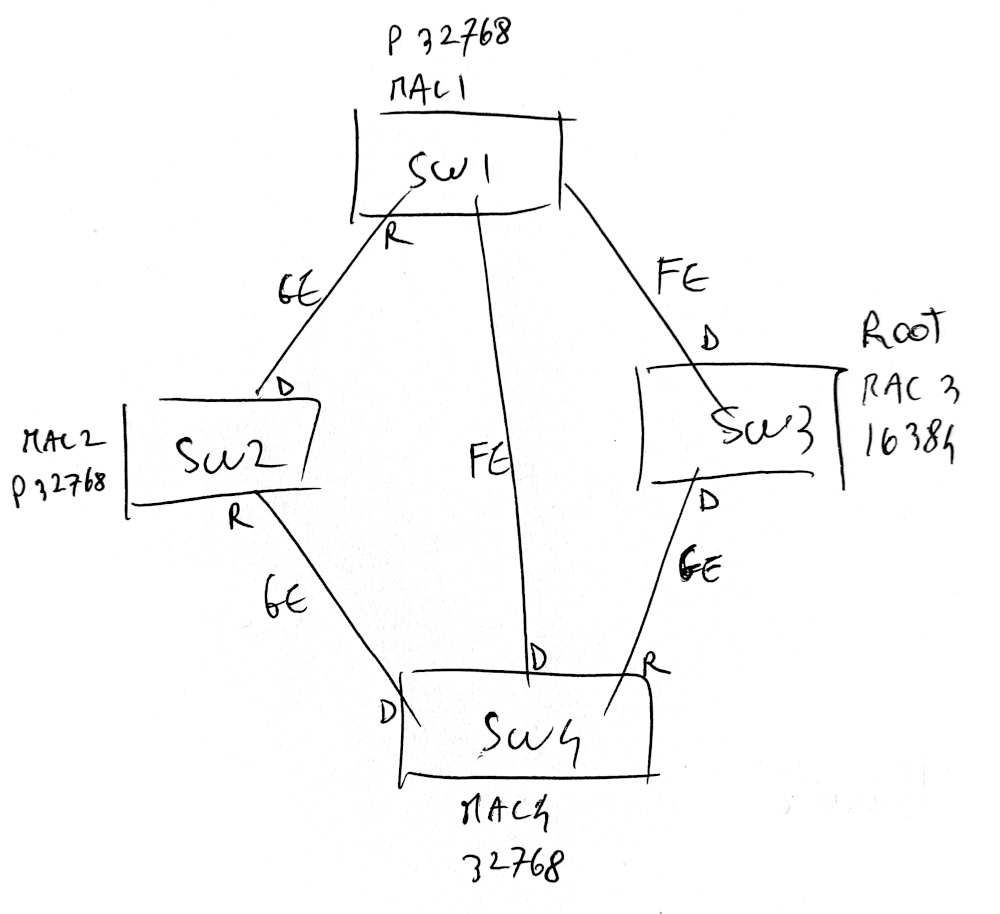 P 32768
MAC1
SW1
R
GE
FE
D
Root
MAC 3
16384
SW3
D
MAC2
P 32768
D
SW2
R
FE
GE
GE
D
R
D
SW4
MAC4
32768